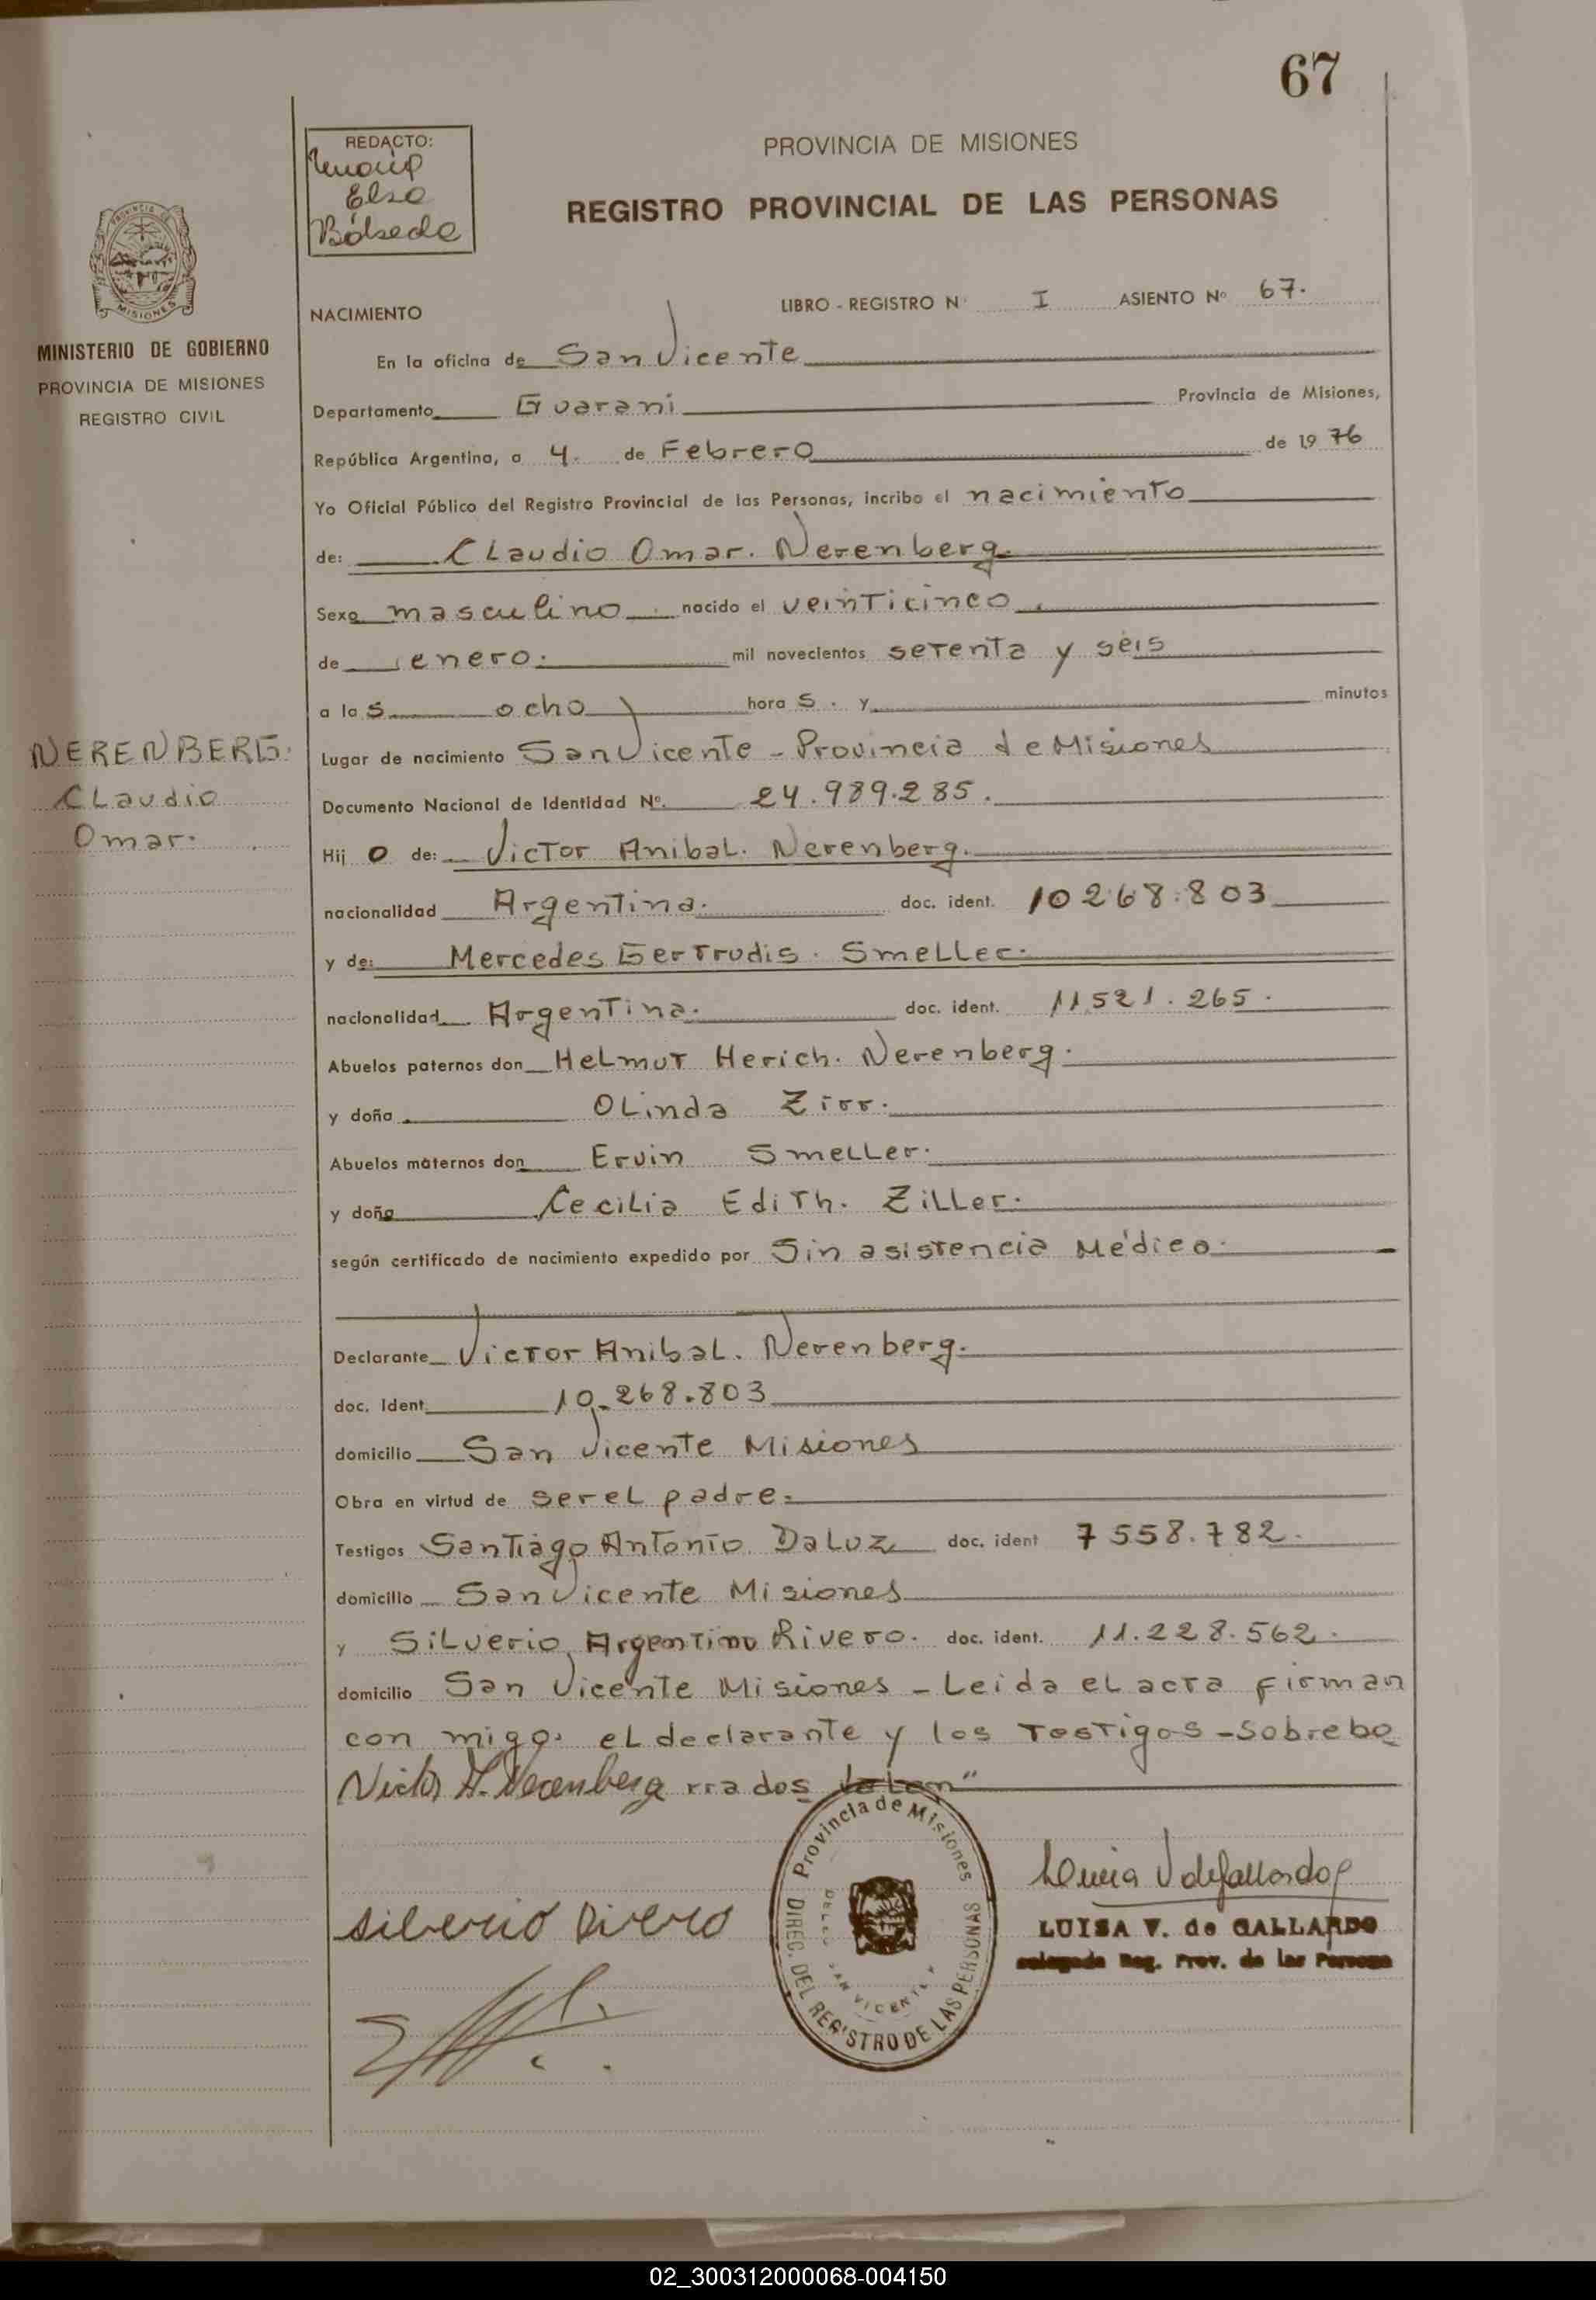 67
REDACTO:
Elsa
Bálseda
PROVINCIA DE MISIONES
REGISTRO PROVINCIAL DE LAS PERSONAS
MISIONES
MINISTERIO DE GOBIERNO
PROVINCIA DE MISIONES
REGISTRO CIVIL
NACIMIENTO LIBRO - REGISTRO N° I ASIENTO N° 67.
En la oficina de San Vicente
Departamento Guaraní Provincia de Misiones,
República Argentina, a 4. de Febrero de 19 76
Yo Oficial Público del Registro Provincial de las Personas, incribo el nacimiento
de: Claudio Omar. Nerenberg.
Sexo masculino. nacido el veinticinco.
de enero. mil novecientos setenta y seis
a las ocho horas. y minutos
NERENBERG.
Claudio
Omar.
Lugar de nacimiento San Vicente - Provincia de Misiones
Documento Nacional de Identidad N°. 24.989.285.
Hijo de: Victor Anibal. Nerenberg.
nacionalidad Argentina. doc. ident. 10268.803
y de: Mercedes Gertrudis. Smeller.
nacionalidad Argentina. doc. ident. 11521.265.
Abuelos paternos don Helmut Herich. Nerenberg.
y doña Olinda Zirr.
Abuelos maternos don Ervin Smeller.
y doña Cecilia Edith. Ziller.
según certificado de nacimiento expedido por Sin asistencia Médica.
Declarante Victor Anibal. Nerenberg.
doc. Ident. 10.268.803
domicilio San Vicente Misiones
Obra en virtud de ser el padre.
Testigos Santiago Antonio Da Luz doc. ident 7558.782.
domicilio San Vicente Misiones
y Silverio Argentino Rivero. doc. ident. 11.228.562.
domicilio San Vicente Misiones - Leida el acta firman
con migo. el declarante y los Testigos - Sobrebo
Victor A. Nerenberg rrados Valen"
Provincia de Misiones
DIREC. DEL REGISTRO DE LAS PERSONAS
SAN VICENTE
silverio Rivero
Luisa V de Gallardo
LUISA V. de GALLARDO
Delegada Reg. Prov. de las Personas
02_300312000068-004150